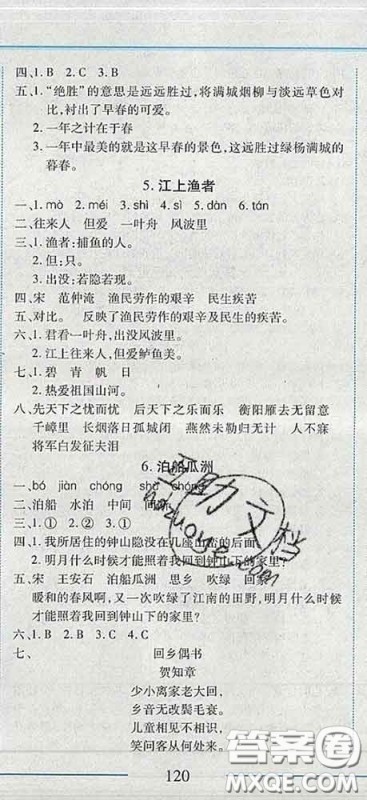 四、1. B　2. C　3. B
五、1. “绝胜”的意思是远远胜过,将满城烟柳与淡远草色对
比,衬出了早春的可爱。
2. 一年之计在于春
3. 一年中最美的就是这早春的景色,这远胜过绿杨满城的
暮春。
5. 江上渔者
一、1. mò　2. méi　3. shì　4. sì　5. dàn　6. tán
二、往来人　但爱　一叶舟　风波里
三、1. 渔者:捕鱼的人。
2. 但:只。
3. 出没:若隐若现。
四、宋　范仲淹　渔民劳作的艰辛　民生疾苦
五、对比。　反映了渔民劳作的艰辛及民生的疾苦。
六、1. 君看一叶舟,出没风波里。
2. 江上往来人,但爱鲈鱼美。
七、1. 碧　青　帆　日
2. 热爱祖国山河。
八、先天下之忧而忧　后天下之乐而乐　衡阳雁去无留意
千嶂里　长烟落日孤城闭　燕然未勒归无计　人不寐
将军白发征夫泪
6. 泊船瓜洲
一、bó　jiàn　chóng　shù　chóng
二、泊船　水泊　中间　间隔
三、1. ①　2. ②　3. ②
四、1. 我所居住的钟山隐没在几座山峦的后面。
2. 明月什么时候才能照着我回到钟山下的家里?
五、宋　王安石　泊船瓜洲　思乡　吹绿　回家
暖和的春风啊,又一次吹绿了江南的田野,明月什么时
候才能照着我回到钟山下的家里?
六、1. B　2. B　3. C　4. C
七、
回乡偶书
贺知章
少小离家老大回,
乡音无改鬓毛衰。
儿童相见不相识,
笑问客从何处来。
120
互助文档
hdzuoye.com
答案圈
MXQE.COM